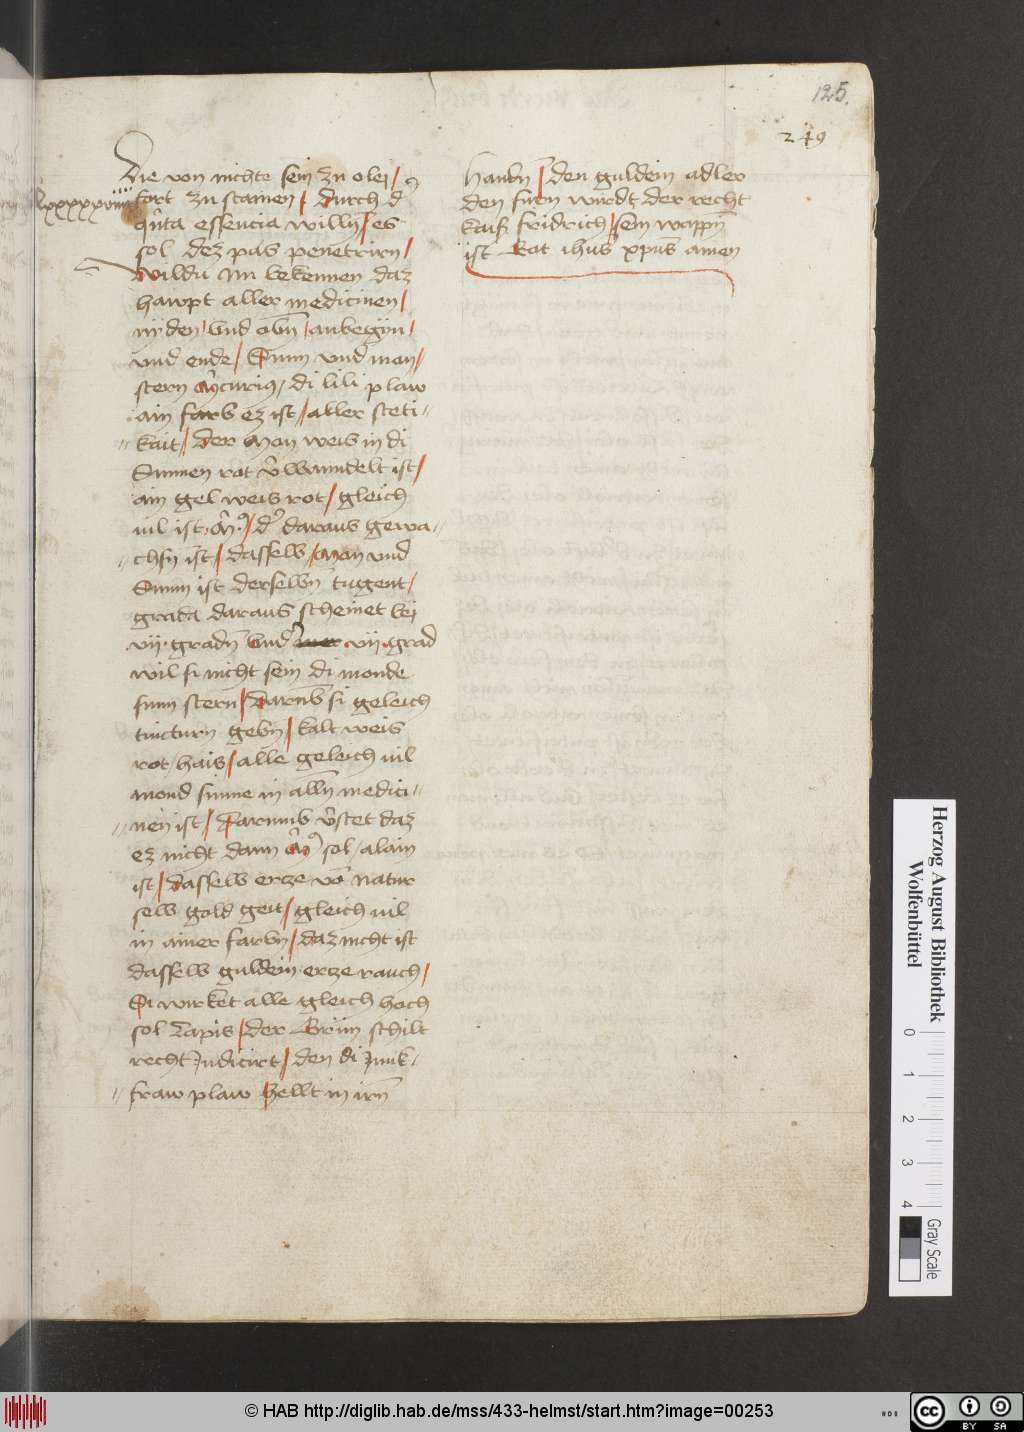 125.
249
Die von nichte sein zu olei /
fort zu stainen / durch d
qu̅ta essencia willn̄ / es
sol dez pas penetrirn /
Wildu Nu bekennen daz
hawpt aller medicinen /
nyden / vnd obn̄ / anbegyn /
vnd ende / Sunn vnd man /
stern m̄curiꝯ / di lili plaw
ain farb ez ist / aller steti〃
〃kait / Der Mon weis in di
Sunnen rot v̄wanndelt ist /
ain gel weis rot / gleich
vil ist m̄ / dˀ daraus gewa〃
〃chsn̄ ist / dasselb / mon vnd
Sunn ist derselbn̄ tugent /
grada daraus scheinet bei
vij · gradn̄ vnd vij grad
wil si nicht sein di monde
sunn stern / Darūb si geleich
tincturn gebn̄ / kalt weis
rot / hais / alle geleich vil
mond sunne in alln̄ medici〃
〃nen ist / Darumb v̄stet daz
ez nicht dann m̄ sol / alain
ist / dasselb ercze vō Natur
selb gold geit / gleich vil
in ainer farbn̄ / daz nicht ist
dasselb guldein ercze rauch /
Si wirket alle gleich hoch
sol Lapis / der Grun schilt
recht Judicirt / den di Junk〃
〃fraw plaw hellt in irn̄
Handn̄ / den guldein adler
den furn wirdt der recht
kaiß fridrich / sein wappn̄
ist Rot ihus xpus amen
Herzog August Bibliothek
Wolfenbüttel
0
1
2
3
4
Gray Scale
© HAB http://diglib.hab.de/mss/433-helmst/start.htm?image=00253
cc
BY SA